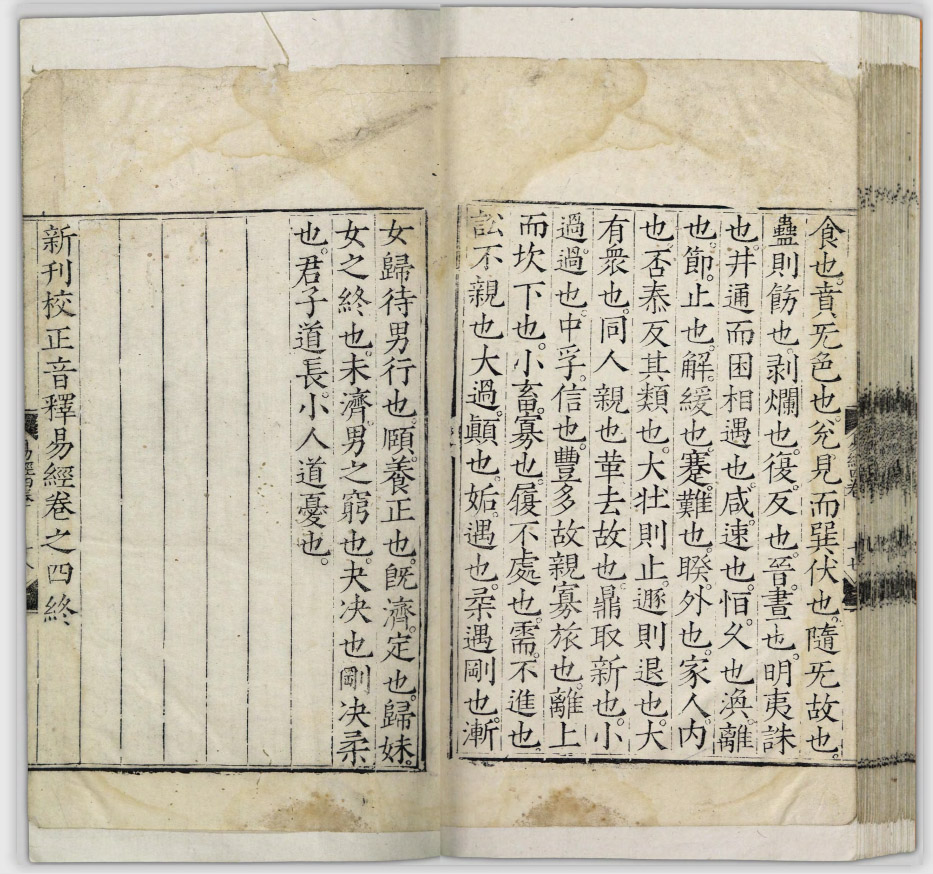 食也。賁无色也。兊見而巽伏也。隨无故也。
蠱則飭也。剥爛也。復反也。晉晝也。明夷誅
也。井通而困相遇也。咸速也。恒久也。渙離
也。節止也。解緩也。蹇難也。睽外也。家人内
也。否泰反其類也。大壯則止。遯則退也。大
有衆也。同人親也。革去故也。鼎取新也。小
過過也。中孚信也。豐多故。親寡旅也。離上
而坎下也。小畜寡也。履不處也。需不進也。
訟不親也。大過顚也。姤遇也。柔遇剛也。漸
女歸待男行也。頤養正也。旣濟定也。歸妹
女之終也。未濟男之窮也。夬决也。剛决柔
也。君子道長。小人道憂也。
新刊校正音釋易經卷之四終